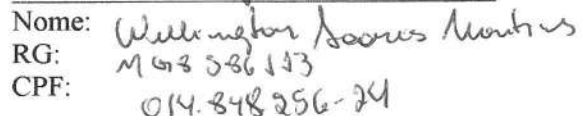 Nome: Wellington Soares Martins
RG:
CPF: 014.848256-24